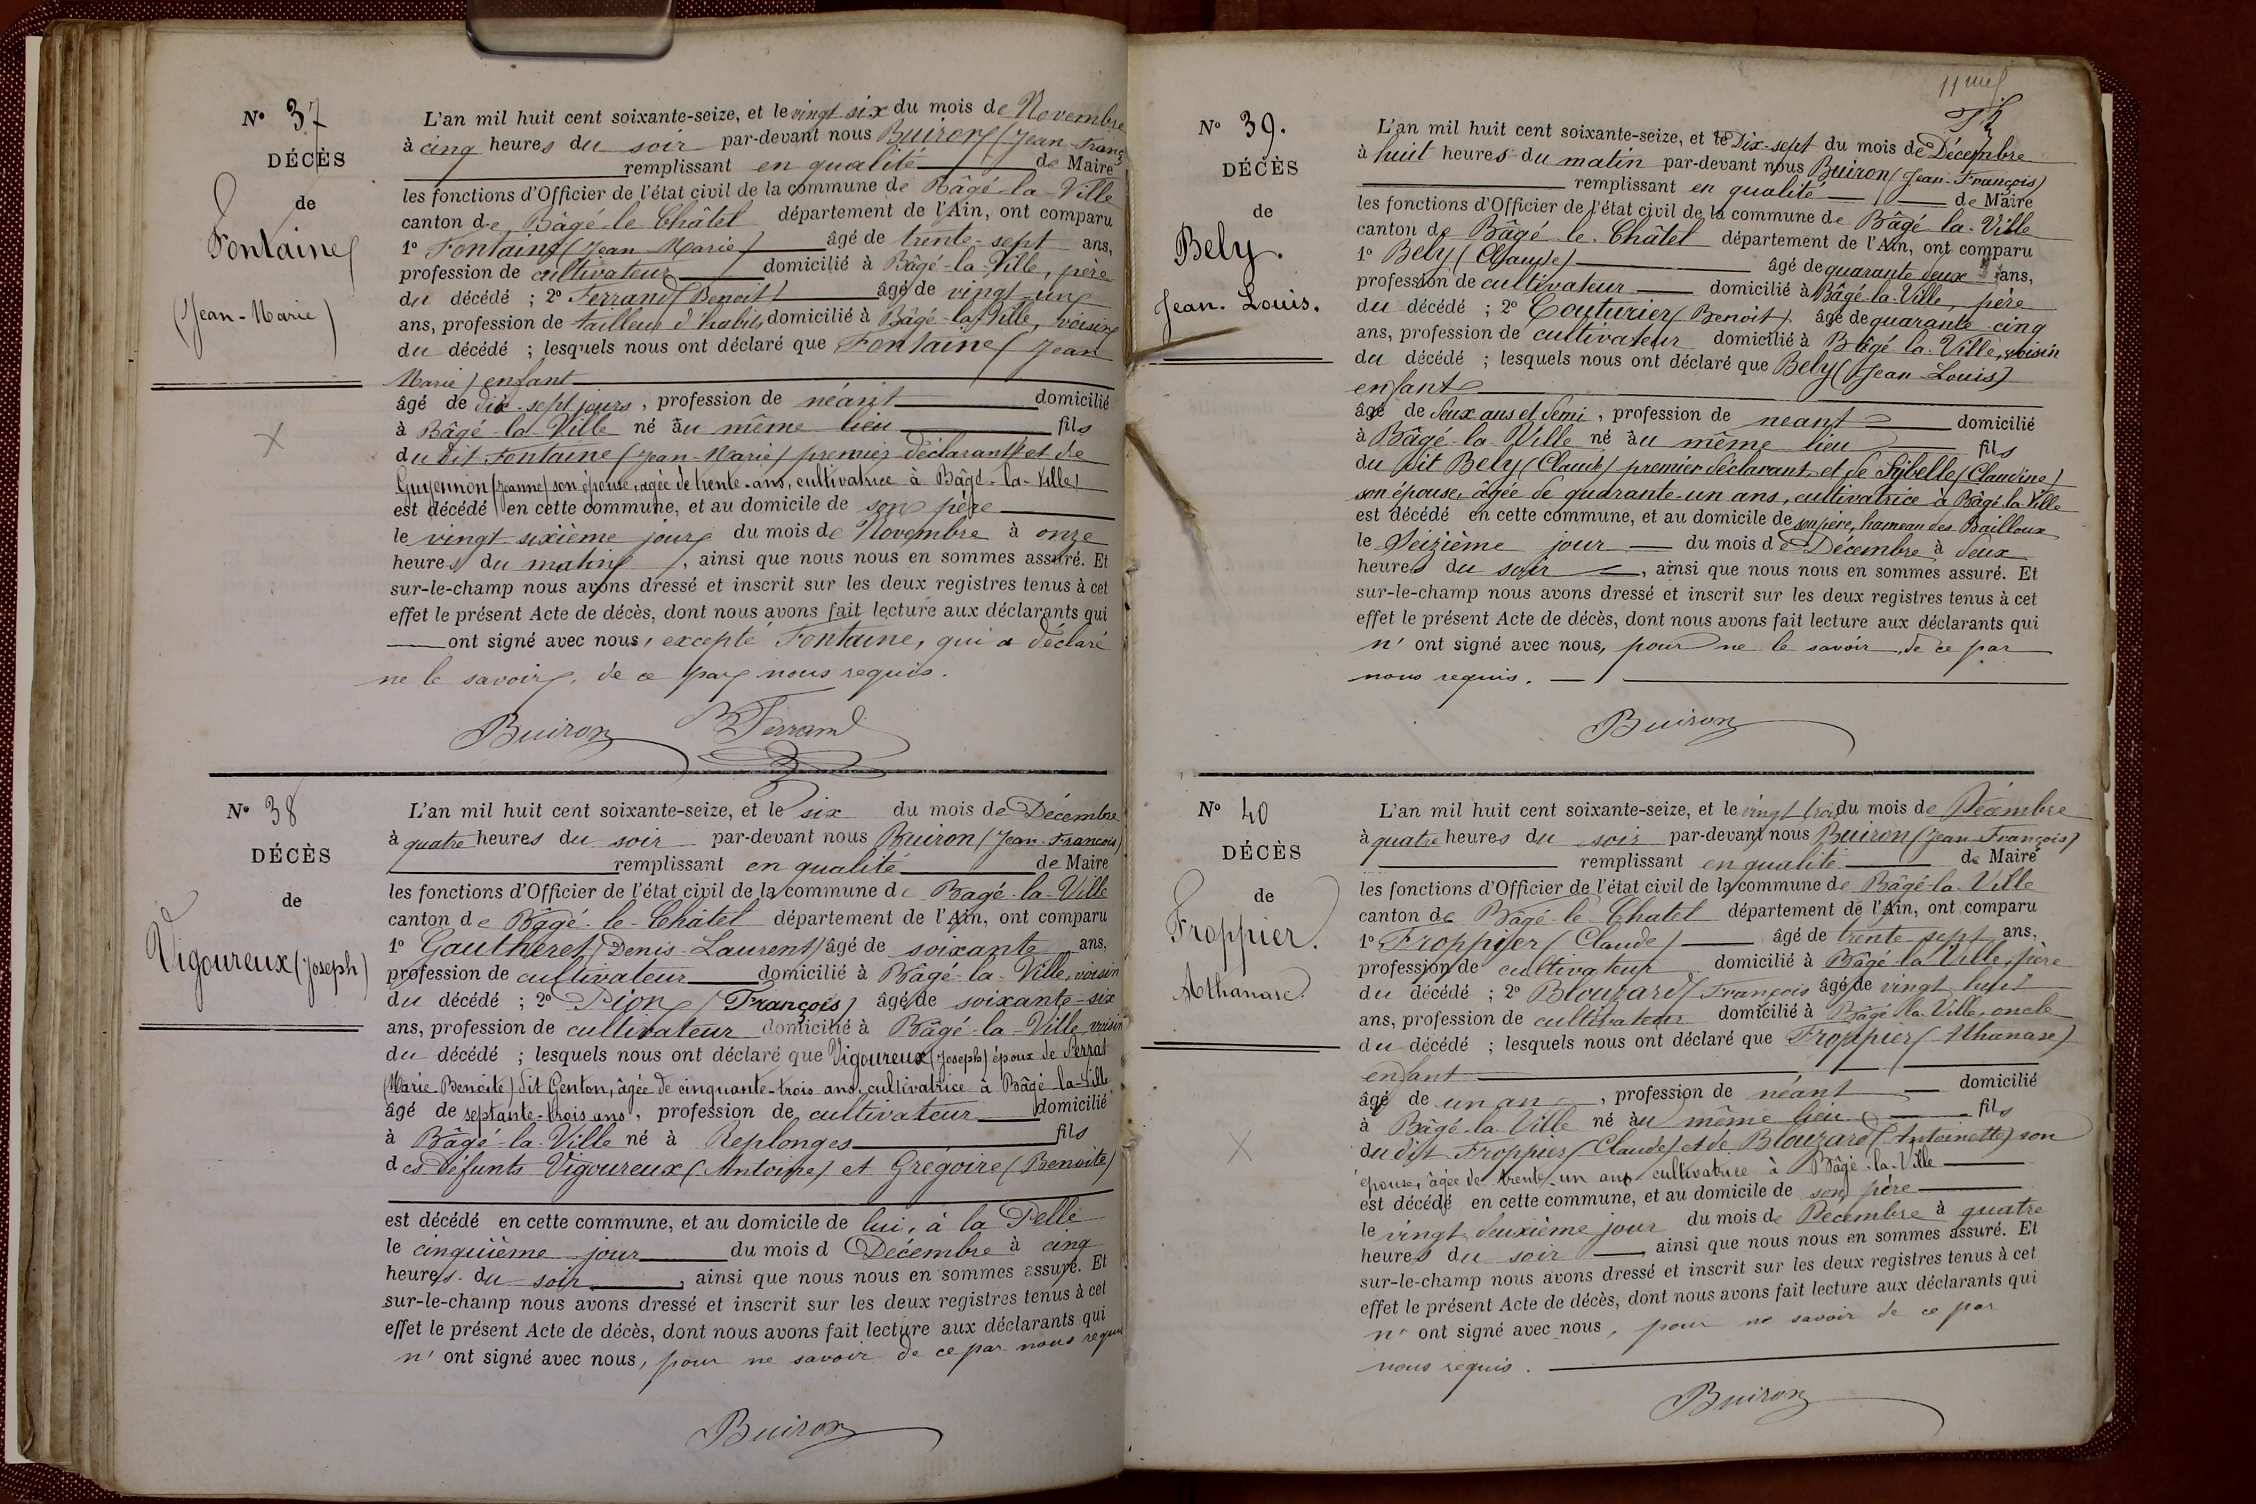 N° 37
DÉCÈS
de
Fontaine
(Jean-Marie)
L'an mil huit cent soixante-seize, et le vingt six du mois de Novembre
à cinq heures du soir par-devant nous Buiron (Jean-Franç
remplissant en qualité de Maire
les fonctions d'Officier de l'état civil de la commune de Bâgé-la-Ville
canton de Bâgé-le-Châtel département de l'Ain, ont comparu
1° Fontaine (Jean Marie) âgé de trente-sept ans,
profession de cultivateur domicilié à Bâgé-la-Ville, père
du décédé ; 2° Ferrand (Benoit) âgé de vingt-un
ans, profession de tailleur d'habits domicilié à Bâgé-la-Ville, voisin
du décédé ; lesquels nous ont déclaré que Fontaine (Jean
Marie) enfant
âgé de dix-sept jours, profession de néant domicilié
à Bâgé-la-Ville né au même lieu fils
du dit Fontaine (Jean-Marie) premier déclarant et de
Guyennon (Jeanne) son épouse, agée de trente-ans, cultivatrice à Bâgé-la-Ville
est décédé en cette commune, et au domicile de son père
le vingt sixième jour du mois de Novembre à onze
heures du matin, ainsi que nous nous en sommes assuré. Et
sur-le-champ nous avons dressé et inscrit sur les deux registres tenus à cet
effet le présent Acte de décès, dont nous avons fait lecture aux déclarants qui
ont signé avec nous, excepté Fontaine, qui a déclaré
ne le savoir, de ce par nous requis.
Buiron B Ferrand
N° 38
DÉCÈS
de
Vigoureux (Joseph)
L'an mil huit cent soixante-seize, et le six du mois de Décembre
à quatre heures du soir par-devant nous Buiron (Jean-François)
remplissant en qualité de Maire
les fonctions d'Officier de l'état civil de la commune de Bagé-la-Ville
canton de Bâgé-le-Châtel département de l'Ain, ont comparu
1° Gautheret (Denis-Laurent) âgé de soixante ans,
profession de cultivateur domicilié à Bâgé-la-Ville, voisin
du décédé ; 2° Pion (François) âgé de soixante-six
ans, profession de cultivateur domicilié à Bâgé-la-Ville, voisin
du décédé ; lesquels nous ont déclaré que Vigoureux (Joseph) époux de Perrat
(Marie Benoite) dit Genton, âgée de cinquante-trois ans, cultivatrice à Bâgé-la-Ville
âgé de septante-trois ans, profession de cultivateur domicilié
à Bâgé-la-Ville né à Replonges fils
des défunts Vigoureux (Antoine) et Grégoire (Benoite)
est décédé en cette commune, et au domicile de lui, à la Pelle
le cinquième jour du mois d Décembre à cinq
heures du soir, ainsi que nous nous en sommes assuré. Et
sur-le-champ nous avons dressé et inscrit sur les deux registres tenus à cet
effet le présent Acte de décès, dont nous avons fait lecture aux déclarants qui
n' ont signé avec nous, pour ne savoir de ce par nous requis
Buiron
N° 39.
DÉCÈS
de
Bely.
Jean-Louis.
L'an mil huit cent soixante-seize, et le Dix-sept du mois de Décembre
à huit heures du matin par-devant nous Buiron (Jean-François)
remplissant en qualité de Maire
les fonctions d'Officier de l'état civil de la commune de Bâgé la-Ville
canton de Bâgé le Châtel département de l'Ain, ont comparu
1° Bely (Claude) âgé de quarante deux ans,
profession de cultivateur domicilié à Bâgé-la-Ville, père
du décédé ; 2° Couturier (Benoit) âgé de quarante cinq
ans, profession de cultivateur domicilié à Bâgé la-Ville, voisin
du décédé ; lesquels nous ont déclaré que Bely (Jean Louis)
enfant
âgé de deux ans et demi, profession de neant domicilié
à Bâgé-la-Ville né au même lieu fils
du dit Bely (Claude) premier déclarant, et de Sybelle (Claudine)
son épouse, âgée de quarante-un ans, cultivatrice à Bâgé-la-Ville
est décédé en cette commune, et au domicile de son père, hameau des Bailloux
le Seizième jour du mois de Décembre à deux
heures du soir, ainsi que nous nous en sommes assuré. Et
sur-le-champ nous avons dressé et inscrit sur les deux registres tenus à cet
effet le présent Acte de décès, dont nous avons fait lecture aux déclarants qui
n' ont signé avec nous, pour ne le savoir, de ce par
nous requis.
Buiron
N° 40
DÉCÈS
de
Froppier.
Athanase.
L'an mil huit cent soixante-seize, et le vingt trois du mois de Décembre
à quatre heures du soir par-devant nous Buiron (Jean François)
remplissant en qualité de Maire
les fonctions d'Officier de l'état civil de la commune de Bâgé-la-Ville
canton de Bâgé-le-Chatel département de l'Ain, ont comparu
1° Froppier (Claude) âgé de trente sept ans,
profession de cultivateur domicilié à Bâgé-la-Ville, père
du décédé ; 2° Blouzard (François âgé de vingt huit
ans, profession de cultivateur domicilié à Bâgé la-Ville, oncle
du décédé ; lesquels nous ont déclaré que Froppier (Athanase)
enfant
âgé de un an, profession de néant domicilié
à Bâgé-la-Ville né au même lieu fils
du dit Froppier (Claude) et de Blouzard (Antoinette) son
épouse, âgée de trente-un ans cultivatrice à Bâgé-la-Ville
est décédé en cette commune, et au domicile de son père
le vingt deuxième jour du mois de Décembre à quatre
heures du soir, ainsi que nous nous en sommes assuré. Et
sur-le-champ nous avons dressé et inscrit sur les deux registres tenus à cet
effet le présent Acte de décès, dont nous avons fait lecture aux déclarants qui
n' ont signé avec nous, pour ne savoir de ce par
nous requis.
Buiron